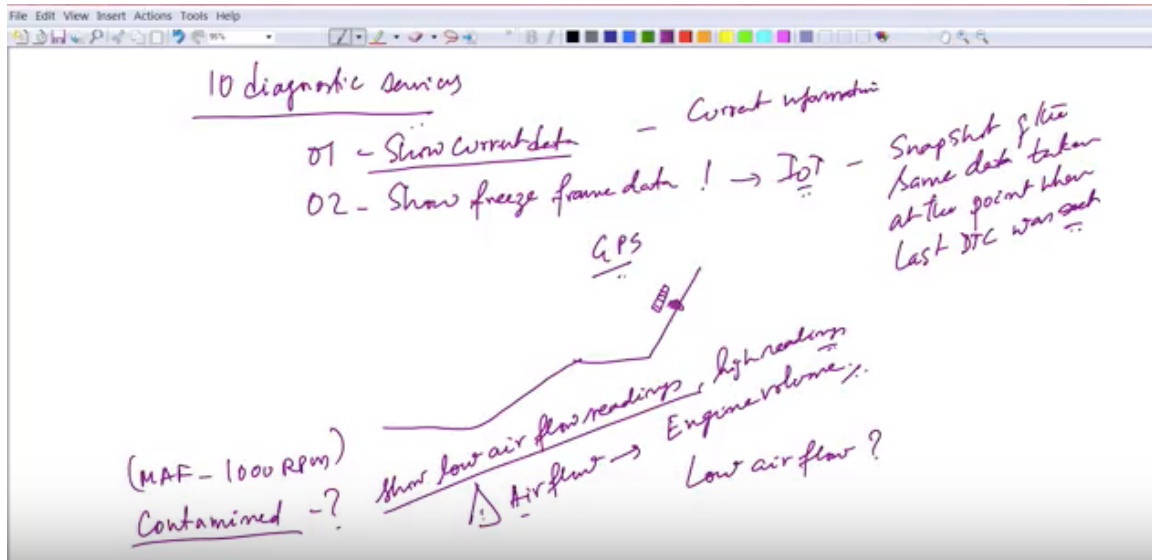 File Edit View Insert Actions Tools Help
95%
10 diagnostic services
01 - Show current data - Current information
02 - Show freeze frame data ! → IoT - Snapshot of the
same data taken
at the point when
last DTC was set
GPS
(MAF - 1000 RPM)
Contamined - ? Show low air flow readings, high readings
Air flow → Engine volume
Low air flow ?